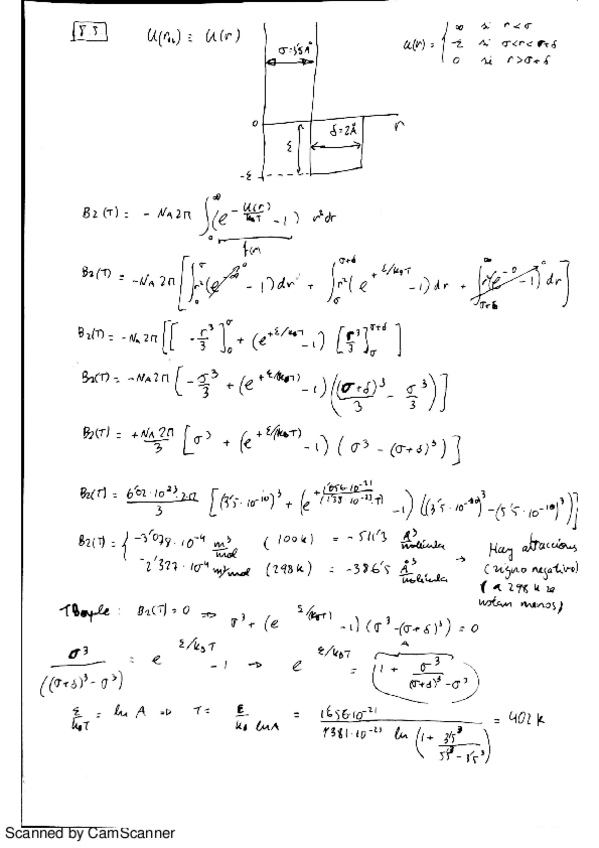 8.3 U(r₁₂) ≡ U(r)
U(r) = { ∞ si r<σ
-ε si σ<r<σ+δ
0 si r>σ+δ
σ=3'5Å
0 ε δ=2Å r
-ε
B₂(T) = - N_A 2π ∫₀^∞ (e^(-U(r)/k_BT) - 1) r² dr
f(r)
B₂(T) = -N_A 2π [∫₀^σ r²(e^-∞ - 1) dr + ∫_σ^(σ+δ) r²(e^(+ε/k_BT) - 1) dr + ∫_(σ+δ)^∞ r²(e^-0 - 1) dr]
B₂(T) = -N_A 2π [[-r³/3]₀^σ + (e^(+ε/k_BT) - 1) [r³/3]_σ^(σ+δ)]
B₂(T) = -N_A 2π [-σ³/3 + (e^(+ε/(k_BT)) - 1)((σ+δ)³/3 - σ³/3)]
B₂(T) = +N_A 2π/3 [σ³ + (e^(+ε/(k_BT)) - 1)(σ³ - (σ+δ)³)]
B₂(T) = 6'02·10²³·2π/3 [(3'5·10⁻¹⁰)³ + (e^(+1'656·10⁻²¹/(1'38·10⁻²³·T)) - 1)((3'5·10⁻¹⁰)³ - (5'5·10⁻¹⁰)³)]
B₂(T) = { -3'079·10⁻⁴ m³/mol (100K) = -511'3 Å³/molécula
-2'327·10⁻⁴ m³/mol (298K) = -386'5 Å³/molécula → Hay attacciones
(signo negativo)
(a 298 K se
notan menos)
TBoyle: B₂(T)=0 ⇒ σ³ + (e^(ε/(k_BT)) - 1)(σ³ - (σ+δ)³) = 0
σ³/((σ+δ)³ - σ³) = e^(ε/k_BT) - 1 → e^(ε/k_BT) = (1 + σ³/((σ+δ)³ - σ³)) A
ε/k_BT = ln A ⇒ T = ε/(k_B ln A) = 1656·10⁻²¹/(1'381·10⁻²³ ln(1 + 3'5³/(5'5³ - 3'5³))) = 402K
Scanned by CamScanner